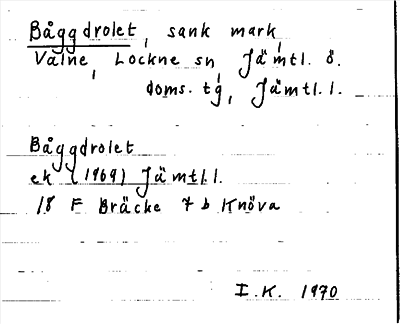 Båggdrolet, sank mark,
Valne, Lockne sn, Jämtl. ö.
doms. tg, Jämtl. l.
Båggdrolet
ek (1969) Jämtl.l.
18 F Bräcke 7 b Knöva
I.K. 1970